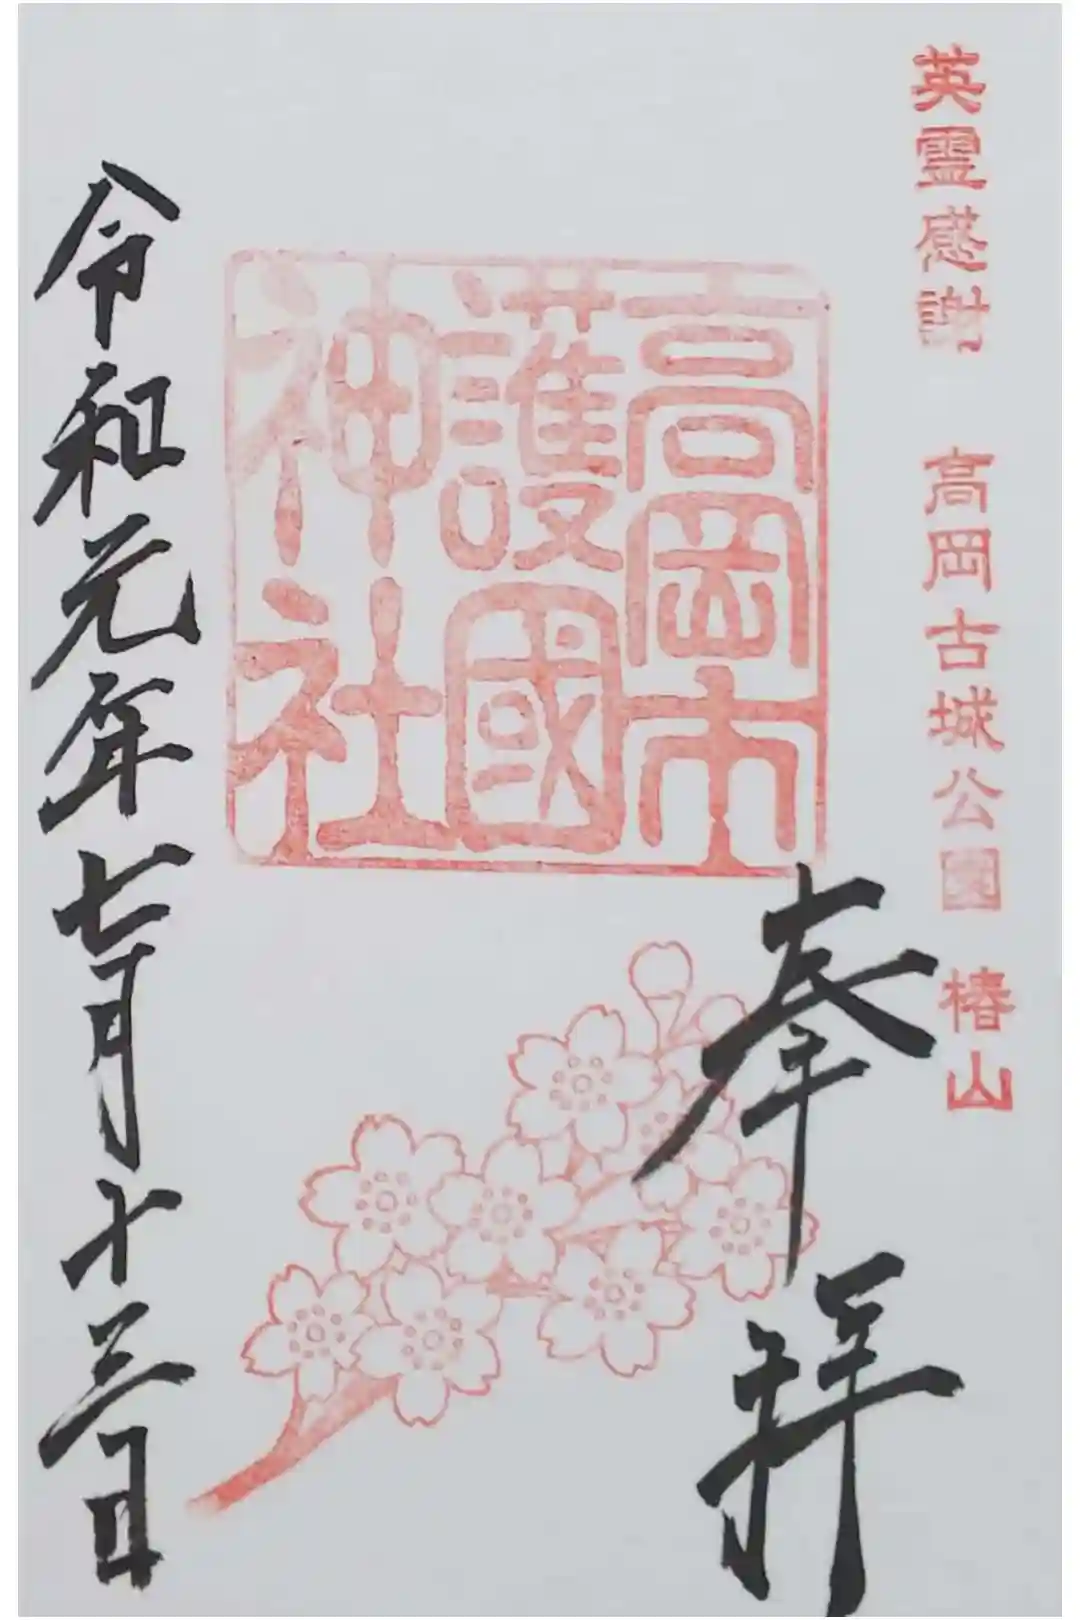 英霊感謝 高岡古城公園 椿山
奉拝
高岡市
護國
神社
令和元年七月十三日